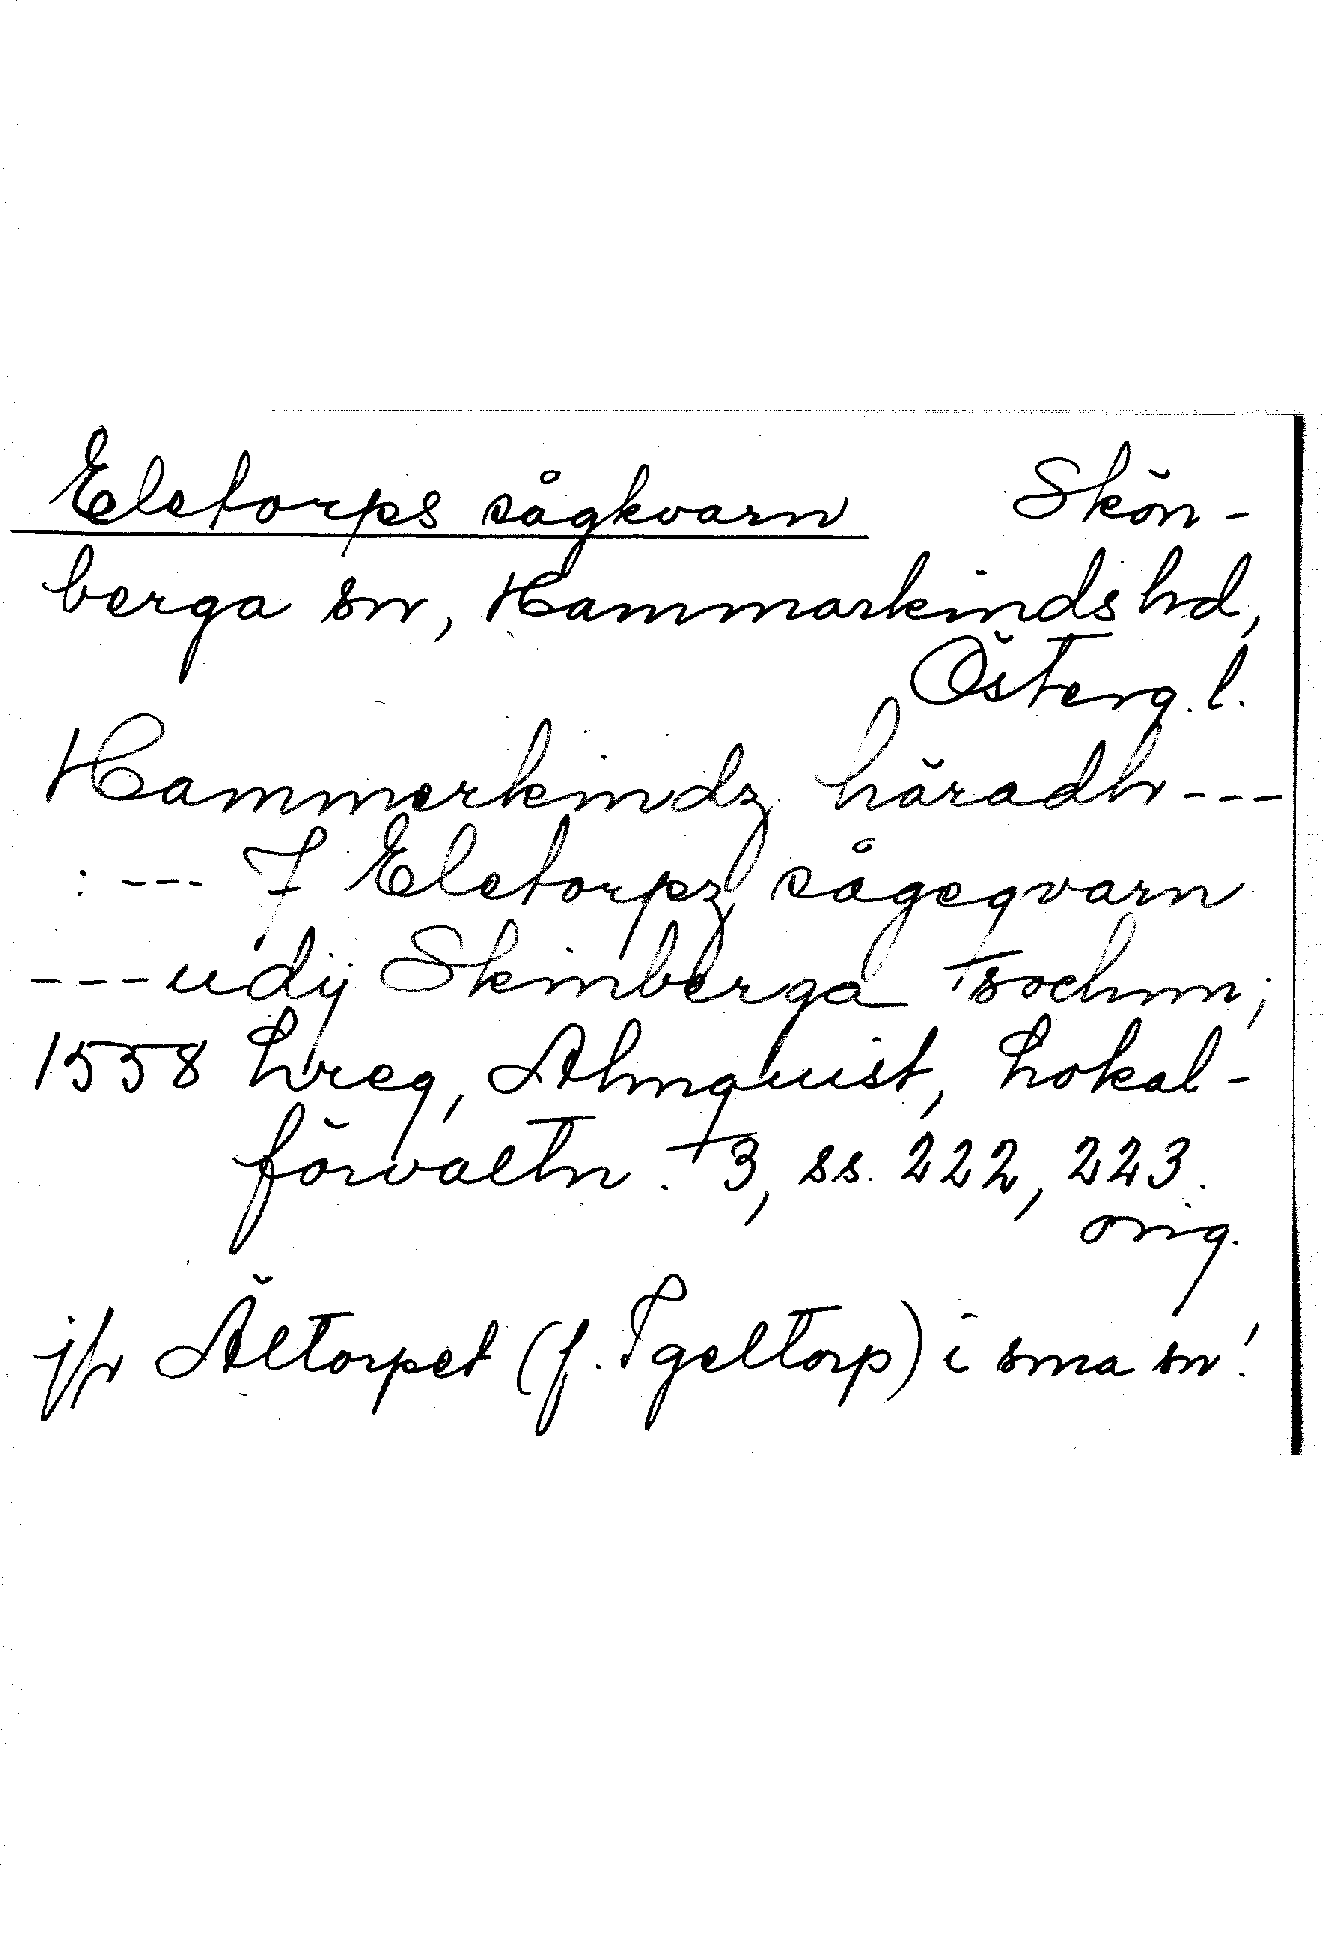 Eletorps sågkvarn Skön-
berga sn, Hammarkinds hd,
Österg.l.
Hammerkindz häradh ---
: --- J Eletorpz sågeqvarn
--- udij Skinberga sochnn;
1558 Lreg, Almquist, Lokal-
förvaltn. 3, ss. 222, 223.
orig.
jfr Ältorpet (f. Igeltorp) i sma sn!